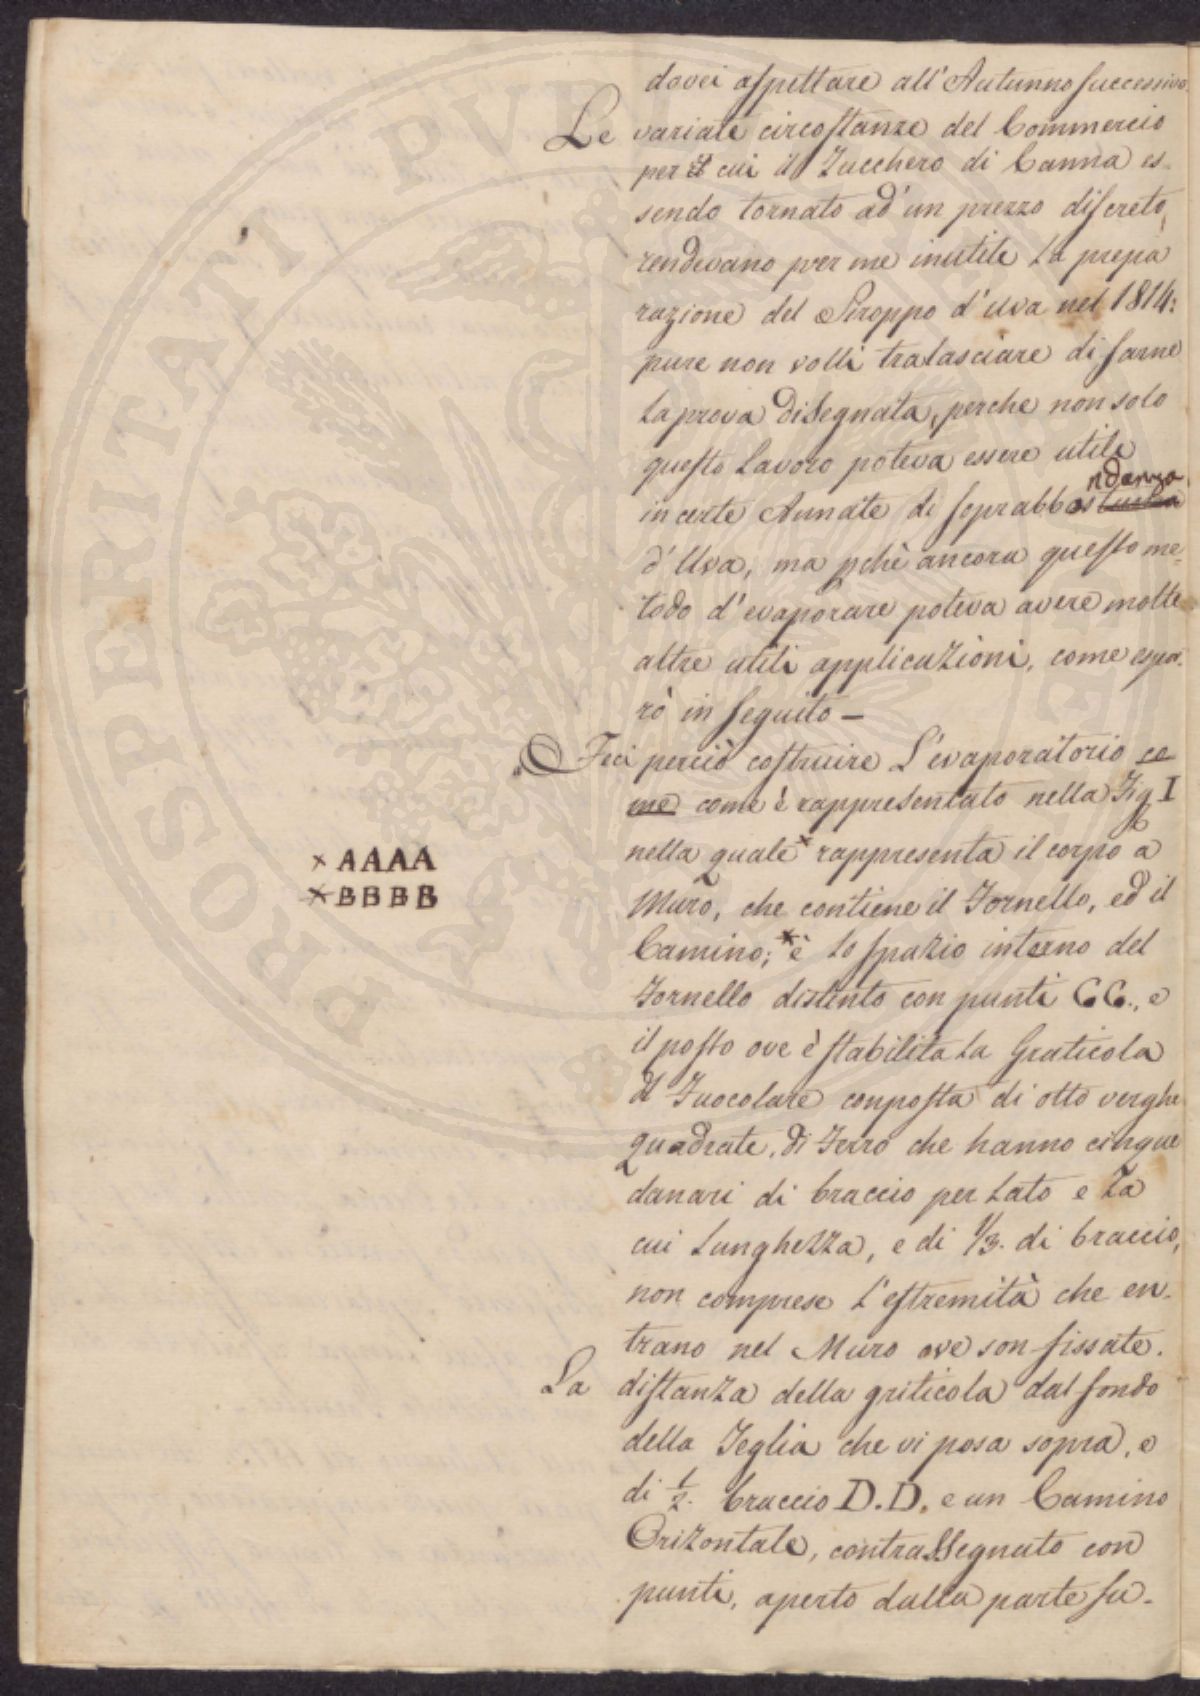 dovei aspettare all'Autunno successivo.
Le variate circostanze del Commercio
per cui il Zucchero di Canna es-
sendo tornato ad un prezzo discreto,
rendevano per me inutile la prepa
razione del Siroppo d'uva nel 1814:
pure non volli tralasciare di farne
la prova disegnata, perche non solo
questo lavoro poteva essere utile
ndanza
in certe Annate di soprabbo
d'Uva, ma pchè ancora questo me-
todo d'evaporare poteva avere molte
altre utili applicazioni, come espor-
rò in seguito —
Feci perciò costruire l'evaporatorio co
me come è rappresentato nella Fig I
nella quale × rappresenta il corpo a
× AAAA
× BBBB
Muro, che contiene il Fornello, ed il
Camino; × è lo spazio interno del
Fornello distinto con punti CC., e
il posto ove è stabilita la Graticola
Il Fuocolare conposta di otto verghe
quadrate, di Ferro che hanno cinque
danari di braccio per lato e la
cui lunghezza, e di 1/3. di braccio,
non comprese l'estremità che en-
trano nel Muro ove son fissate.
La distanza della griticola dal fondo
della Teglia che vi posa sopra, e
di 1/2. braccio D.D. e un Camino
Orizontale, contrassegnato con
punti, aperto dalla parte su-
PROSPERITATI PVBLICAE